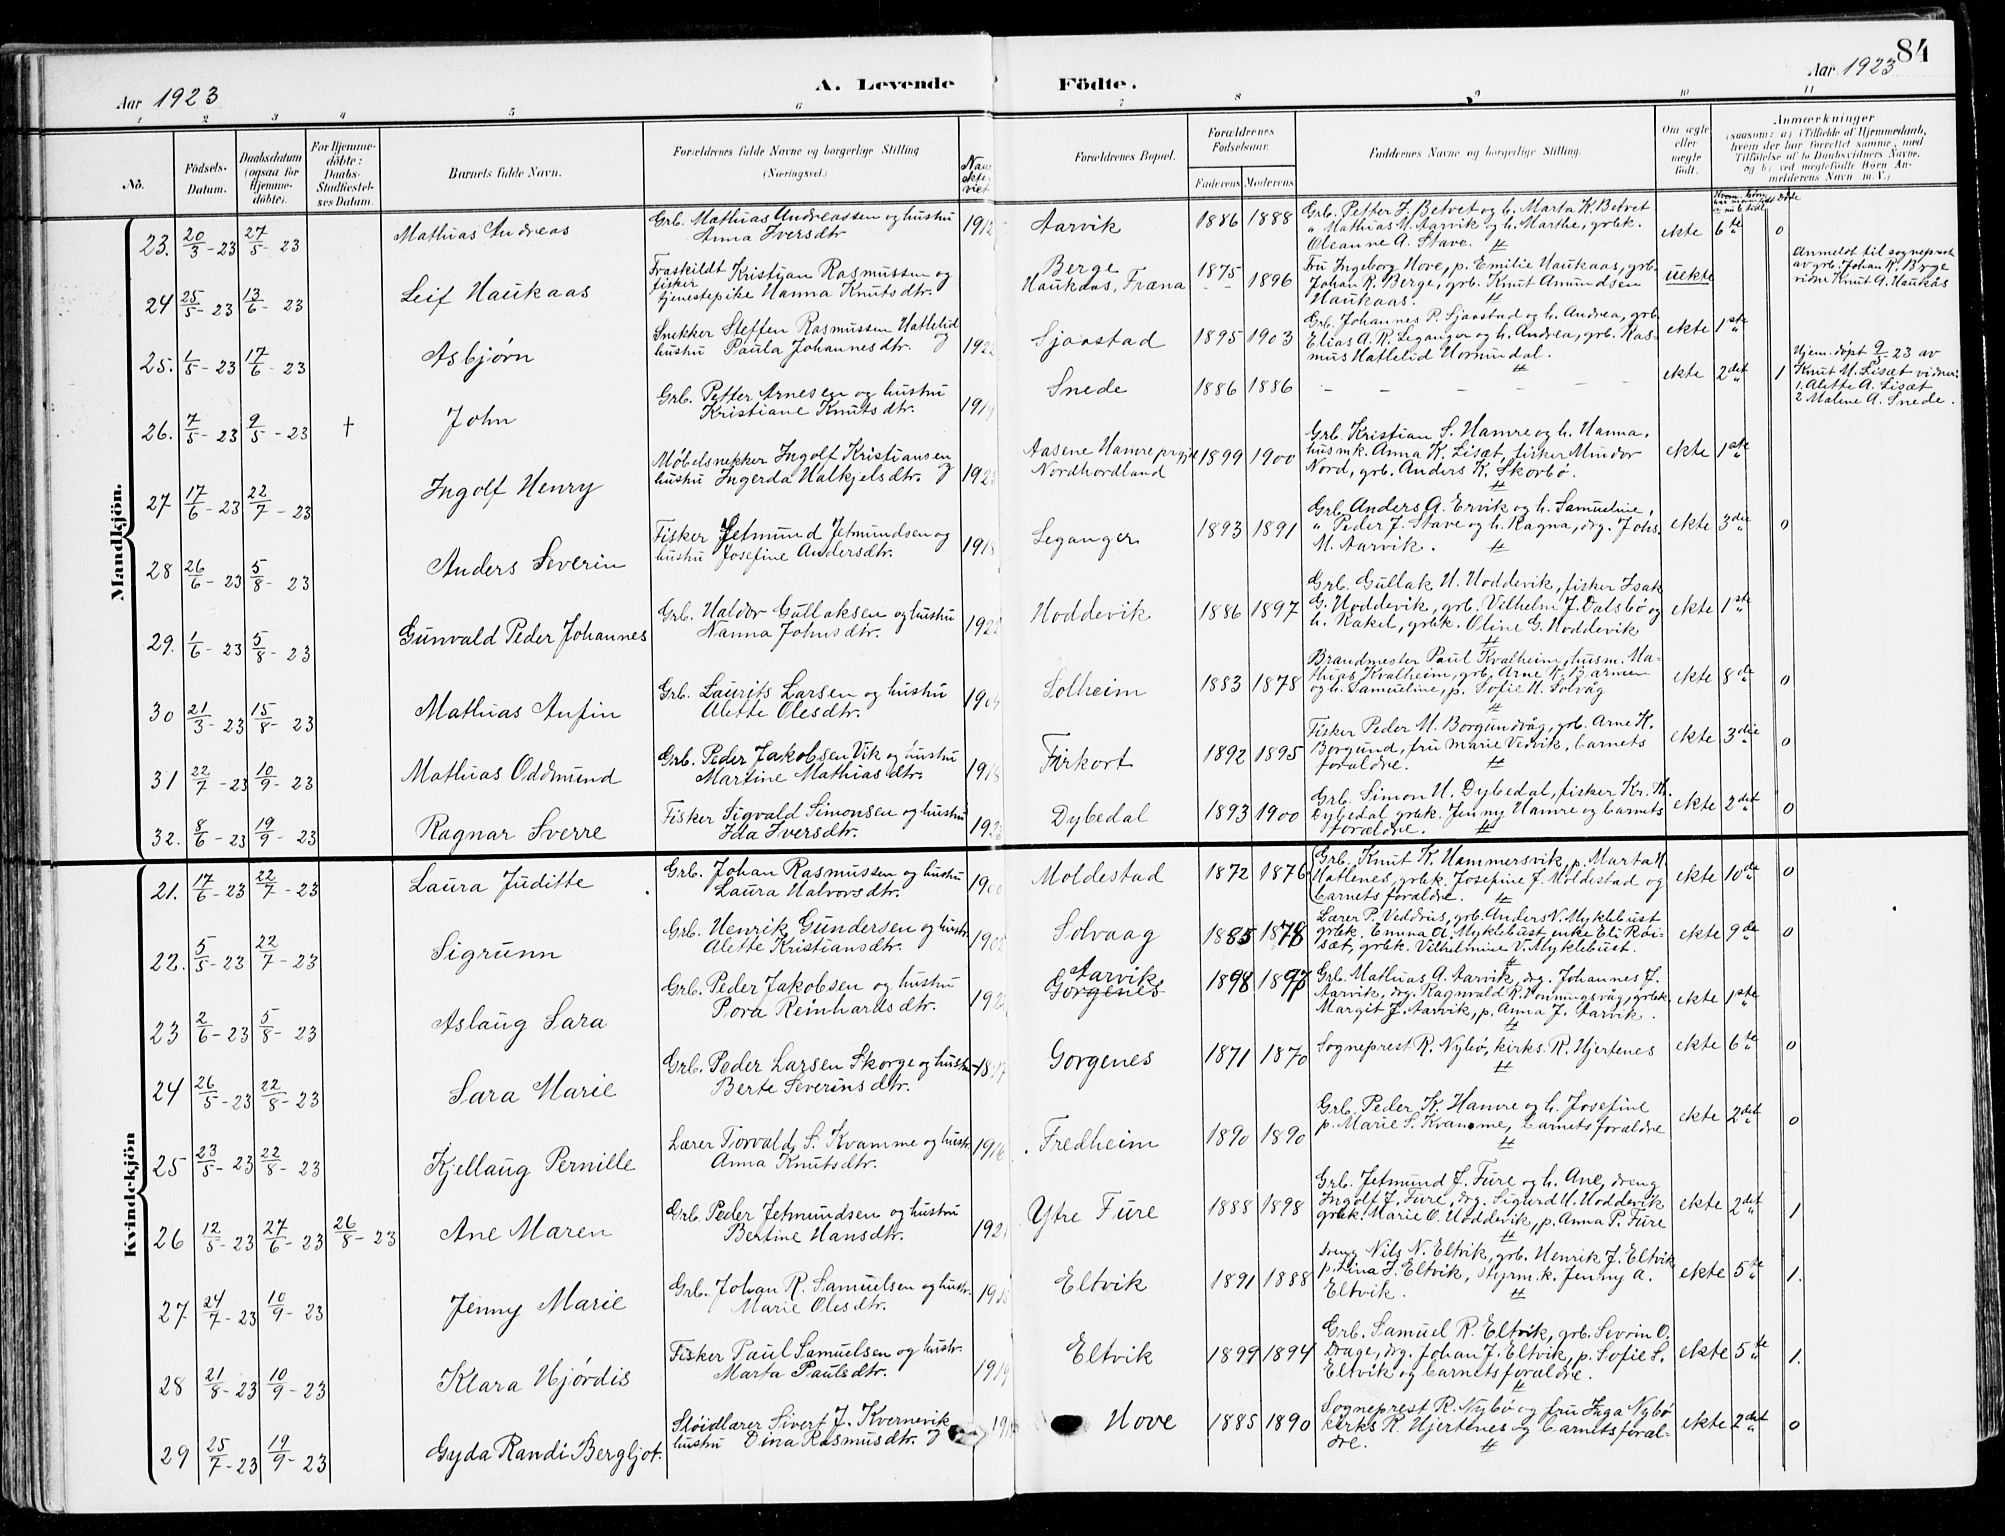 84
Aar 1923
A. Levende
Födte.
Aar 1923
1 2 3 4 5 6 7 8 9 10 11
No.
Födsels-Datum.
Daabsdatum (ogsaa for Hjemme-döbte).
For Hjemme-döbte: Daabs-Stadfæstel-ses Datum.
Barnets fulde Navn.
Forældrenes fulde Navne og borgerlige Stilling
(Næringsvei.)
Forældrenes Bopæl.
Forældrenes Födselsaar.
Faderens Moderens
Faddernes Navne og borgerlige Stilling.
Om ægte eller uægte födt.
Anmærkninger
(saasom: a) i Tilfælde af Hjemmedaab,
hvem der har forrettet samme, med
Tilföielse af to Daabsvidners Navne,
og b) ved uægtefödte Börn An-
melderens Navn m. V.)
Mandkjön.
23. 20/3-23 27/5-23 Mathias Andreas
Grb. Mathias Andreassen og hustru
Anna Iversdtr
1912 Aarvik 1886 1888
Grb. Petter J. Betvet og h. Marta K. Betvet
" Mathias M. Aarvik og h. Marthe, grbk.
Oleanne A. Stave.
ekte 6te 0
24 25/5-23 13/6-23 Leif Haukaas
Fraskildt Kristian Rasmussen og
fisker
tjenestepike Hanna Knutsdtr.
Berge
Haukaas, Fræna
1875 1896
Fru Ingeborg Hove, p. Emilie Haukaas, grb.
Johan R. Berge, grb. Knut Amundsen
Haukaas.
uekte
Anmeldt til sogneprest
av grb. Johan R. Berge
vidne Knut A. Haukås
25. 1/5-23 17/6-23 Asbjørn
Snekker Steffen Rasmussen Hatlelid og
hustru Paula Johannesdtr.
1922 Sjaastad 1895 1903
Grb. Johannes P. Sjaastad og h. Andrea, grb.
Elias A. R. Leganger og h. Andrea, grb. Ras-
mus Hatlelid Hornindal.
ekte 1ste
26. 7/5-23 9/5-23 † John
Grb. Petter Arnesen og hustru
Kristiane Knutsdtr.
1919 Snede 1886 1886
– – – – –
ekte 2det 1
Hjem.døpt 9/5-23 av
Knut M. Lisæt vidner:
1. Alette A. Lisæt
2 Malene A. Snede.
27 17/6-23 22/7-23 Ingolf Henry
Møbelsnekker Ingolf Kristiansen og
hustru Ingerda Halkjelsdtr.
Aasene Hamre prgjl
Nordhordland
1899 1900
Grb. Kristian S. Hamre og h. Hanna,
husmk. Anna K. Lisæt, fisker Mindor
Nord, grb. Anders K. Skorbø.
ekte 1ste
28 26/6-23 5/8-23 Anders Severin
Fisker Jetmund Jetmundsen og
hustru Josefine Andersdtr.
1918 Leganger 1893 1891
Grb. Anders A. Ervik og h. Samueline,
" Peder J. Stave og h. Ragna, drg. Johs.
M. Aarvik.
ekte 3die 0
29. 1/6-23 5/8-23 Gunvald Peder Johannes
Grb. Haldor Gullaksen og hustru
Nanna Johnsdtr.
Hoddevik 1886 1897
Grb. Gullak H. Hoddevik, fisker Isak
G. Hoddevik, grb. Vilhelm J. Dalsbø og
h. Rakel, grbk. Oline G. Hoddevik
ekte 1ste
30 21/3-23 15/8-23 Mathias Anfin
Grb. Laurits Larsen og hustru
Alette Olesdtr.
1904 Solheim 1883 1878
Brandmester Paul Kvalheim, husm. Ma-
thias Kvalheim, grb. Arne K. Barmen
og h. Samueline, p. Sofie H. Solvåg
ekte 8de 0
31 22/7-23 10/9-23 Mathias Oddmund
Grb. Peder Jakobsen Vik og hustru
Martine Mathiasdtr.
1918 Firkort 1892 1895
Fisker Peder M. Borgundvåg, grb. Arne K.
Borgund, fru Marie Vedvik, barnets
forældre.
ekte 3die 0
32. 8/6-23 19/9-23 Ragnar Sverre
Fisker Sigvald Simonsen og hustru
Ida Iversdtr.
Dybedal 1893 1900
Grb. Simon H. Dybedal, fisker Kr. H.
Dybedal grbk. Jenny Hamre og barnets
forældre.
ekte 2det 0
Kvindekjön
21. 17/6-23 22/7-23 Laura Juditte
Grb. Johan Rasmussen og hustru
Laura Halvorsdtr.
1900 Moldestad 1872 1876
Grb. Knut K. Hammersvik, p. Marta H.
Hatlenes, grbk. Josefine J. Moldestad og
barnets forældre.
ekte 10de 0
22. 5/5-23 22/7-23 Sigrunn
Grb. Henrik Gundersen og hustr.
Alette Kristiansdtr.
Solvaag 1885 1878
Lærer P. Veddrus, grb. Anders V. Myklebust
grbk. Emma O. Myklebust, enke Eli Røi-
sæt, grbk. Vilhelmine V. Myklebust.
ekte 9de 0
23 2/6-23 5/8-23 Aslaug Sara
Grb. Peder Jakobsen og hustru
Pora Reinhardsdtr.
Aarvik
Gorgenes
1898 1897
Grb. Mathias A. Aarvik, drg. Johannes J.
Aarvik, drg. Ragnvald R. Honningsvåg, grbk.
Margit J. Aarvik, p. Anna J. Aarvik.
ekte 1ste 0
24 26/5-23 22/8-23 Sara Marie
Grb. Peder Larsen Skorge og hustru
Berte Severinsdtr.
1897 Gorgenes 1871 1870
Sogneprest R. Nybø, kirks. R. Hjertenes
ekte 6te 0
25 23/5-23 22/8-23 Kjellaug Pernille
Lærer Torvald S. Kvamme og hustr.
Anna Knutsdtr.
1916 Fredheim 1890 1890
Grb. Peder K. Hamre og h. Josefine
p. Marie S. Kvamme, barnets forældre
ekte 2det 0
26 12/5-23 27/6-23 26/8-23 Ane Maren
Grb. Peder Jetmundsen og hustru
Bertine Hansdtr.
1921 Ytre Fure 1888 1898
Grb. Jetmund J. Fure og h. Ane, dreng
Ingolf J. Fure, drg. Sigurd H. Hoddevik
grbk. Marie O. Hoddevik, p. Anna P. Fure
ekte 2det 1
27 24/7-23 10/9-23 Jenny Marie
Grb. Johan R. Samuelsen og hustr.
Marie Olesdtr.
Eltvik 1891 1888
dreng Nils N. Eltvik, grb. Henrik J. Eltvik
p. Lina J. Eltvik, styrm.k. Jenny A.
Eltvik.
ekte 5te 1.
28 21/8-23 10/9-23 Klara Hjørdis
Fisker Paul Samuelsen og hustr.
Marta Paulsdtr.
1919 Eltvik 1899 1894
Grb. Samuel R. Eltvik, grb. Sevrin O.
Drage, drg. Johan J. Eltvik, p. Sofie S.
Eltvik og barnets forældre.
ekte 5te 1.
29 25/7-23 19/9-23 Gyda Randi Bergljot.
Sløidlærer Sivert J. Kvernevik og
hustru Dina Rasmusdtr.
Hove 1885 1890
Sogneprest R. Nybø og fru Inga Nybø
kirks R. Hjertenes og barnets foræl-
dre.
ekte 2det 0